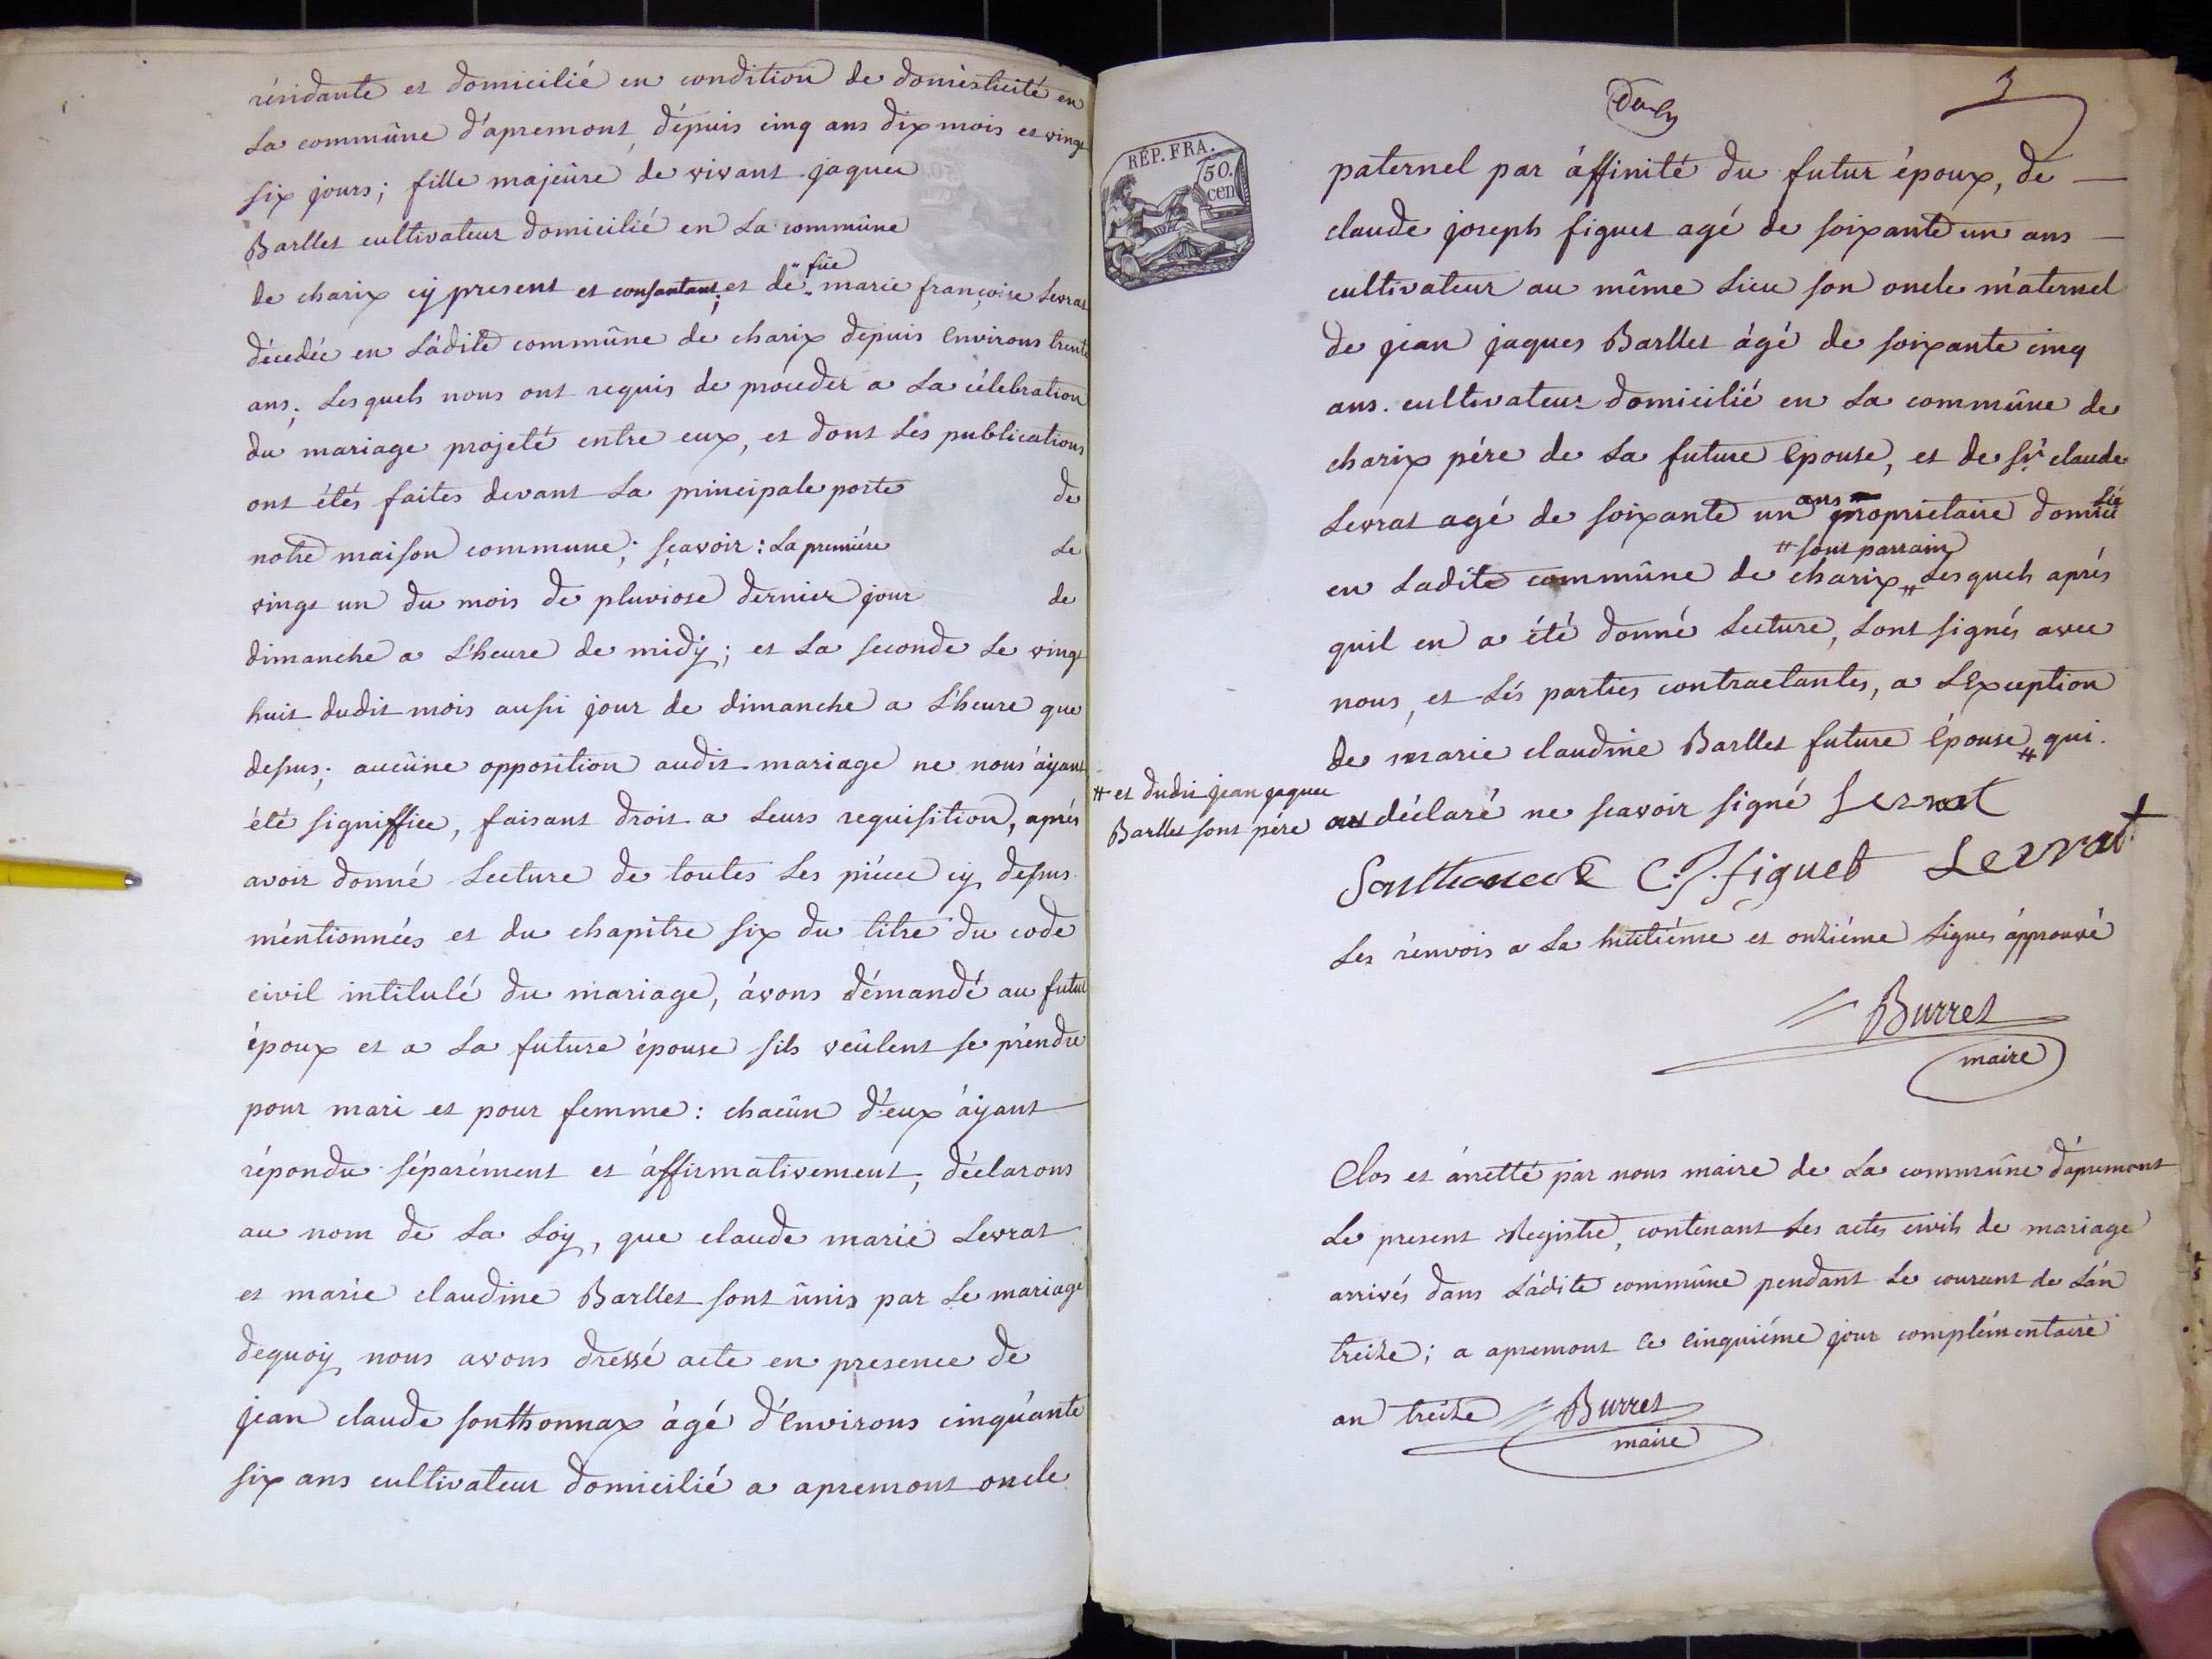 résidante et domicilié en condition de domésticité en
La commûne d'apremont, dépuis cinq ans dix mois et vingt
six jours; fille majeûre de vivant jaques
Barllet cultivateur domicilié en La commûne
de charix cÿ present et consantant; et de füe marie françoise Levrat
décedée en Ládite commûne de charix depuis Environs trente
ans. Lesquels nous ont requis de proceder a La célebration
du mariage projeté entre eux, et dont Les publications
ont étés faites devant La principale porte de
notre maison commune; sçavoir: La premiére Le
vingt un du mois de pluviose dernier jour de
dimanche a L'heure de midÿ; et La seconde Le vingt
huit dudit mois aussi jour de dimanche a L'heure que
dessus; aucüne opposition audit mariage ne nous áÿant
été signiffiée, faisant droit a Leurs requisition, aprés
avoir donné Lecture de toutes Les piéces cÿ dessus
méntionnées et du chapitre six du titre du code
civil intitulé du mariage, ávons démandé au futur
époux et a La future épouse sils veûlent se préndre
pour mari et pour femme: chacûn d'eux áÿant
répondu séparément et áffirmativement, déclarons
au nom de La Loÿ, que claude marie Levrat
et marie claudine Barllet sont ûnis par Le mariage
dequoÿ nous avons dréssé acte en presence de
jean claude sonthonnax ágé d'Environs cinquánte
six ans cultivateur domicilié a apremont oncle
3
RÉP. FRA.
50.
cen
paternel par áffinité du futur époux, de
claude joseph figuet agé de soixante un ans
cultivateur au même Lieu son oncle máternel
de jean jaques Barllet ágé de soixante cinq
ans. cultivateur domicilié en La commûne de
charix pére de La future Epouse, et de Sr claude
Levrat agé de soixante un ans proprietaire domicilié
# sont parrain
en Ladite commûne de charix # Lesquels aprés
quil en a été donné Lecture, sont signés avec
nous, et Lés parties contractantes, a LException
de marie claudine Barllet future Épouse # qui
# et dudit jean jaques
Barllet sont pére
ont déclaré ne scavoir signé Levrat
C. J. figuet Levrat
Les rénvois a La huitiéme et onziéme Lignes ápprouvé
Burret
maire
Clos et árretté par nous maire de La commûne d'apremont
Le present Registre, contenant Les actes civils de mariage
arrivés dans Ládite commûne pendant Le courant de Lán
treize; a apremont Le Cinquiéme jour complémentaire
an treize Burret
maire